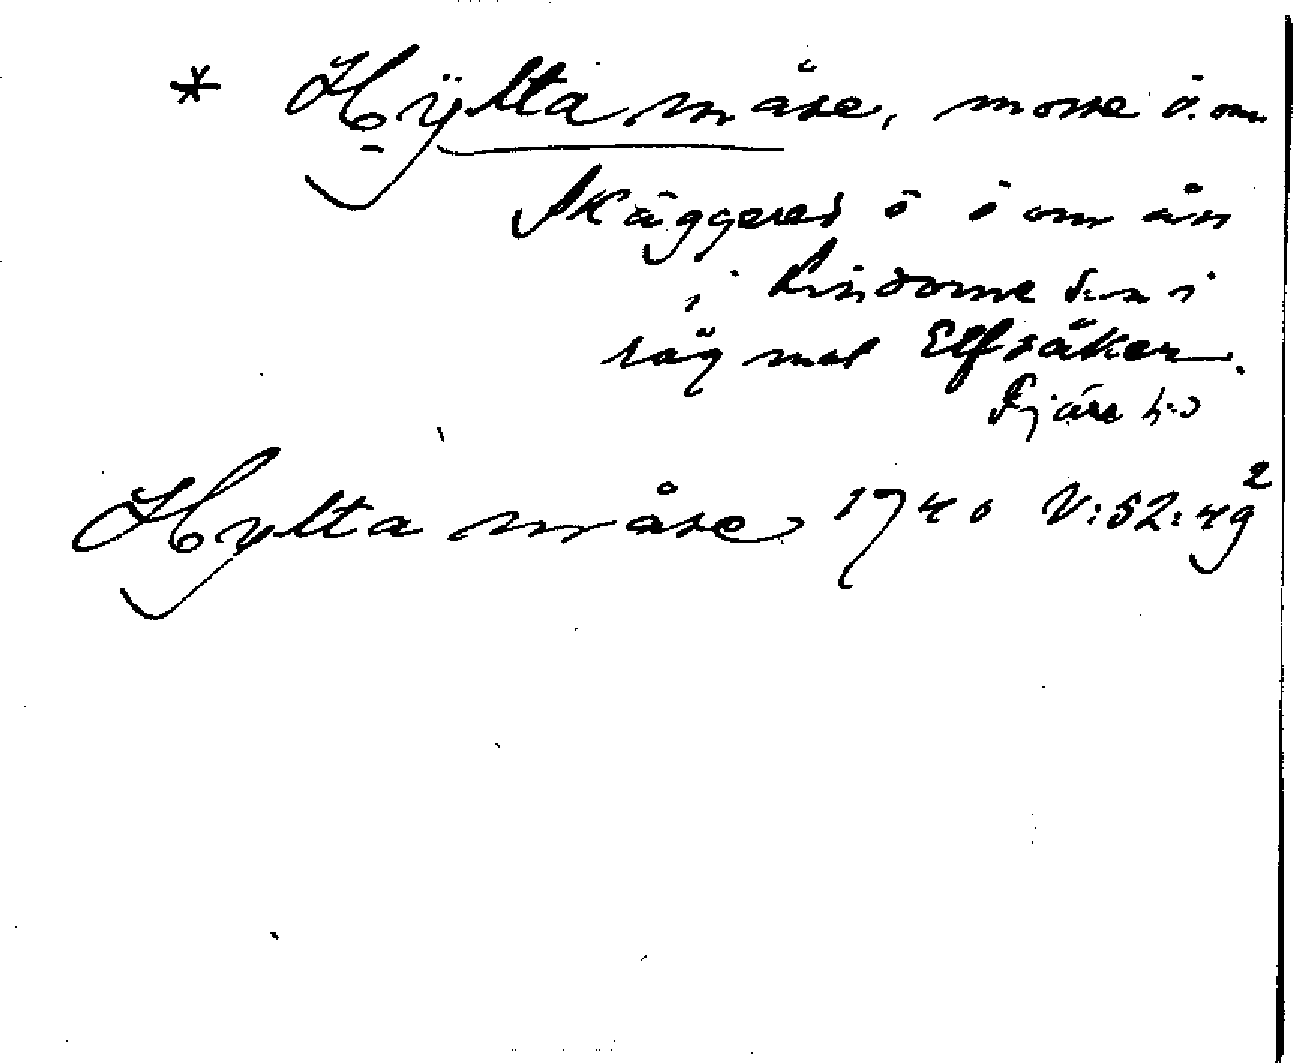 * Hÿlta måse, mosse ö. om
Skäggered ö ö om ån
i Lindome sn i
räg mot Elfsåker.
Fjäre hd
Hylta måse 1740 V:52:49²